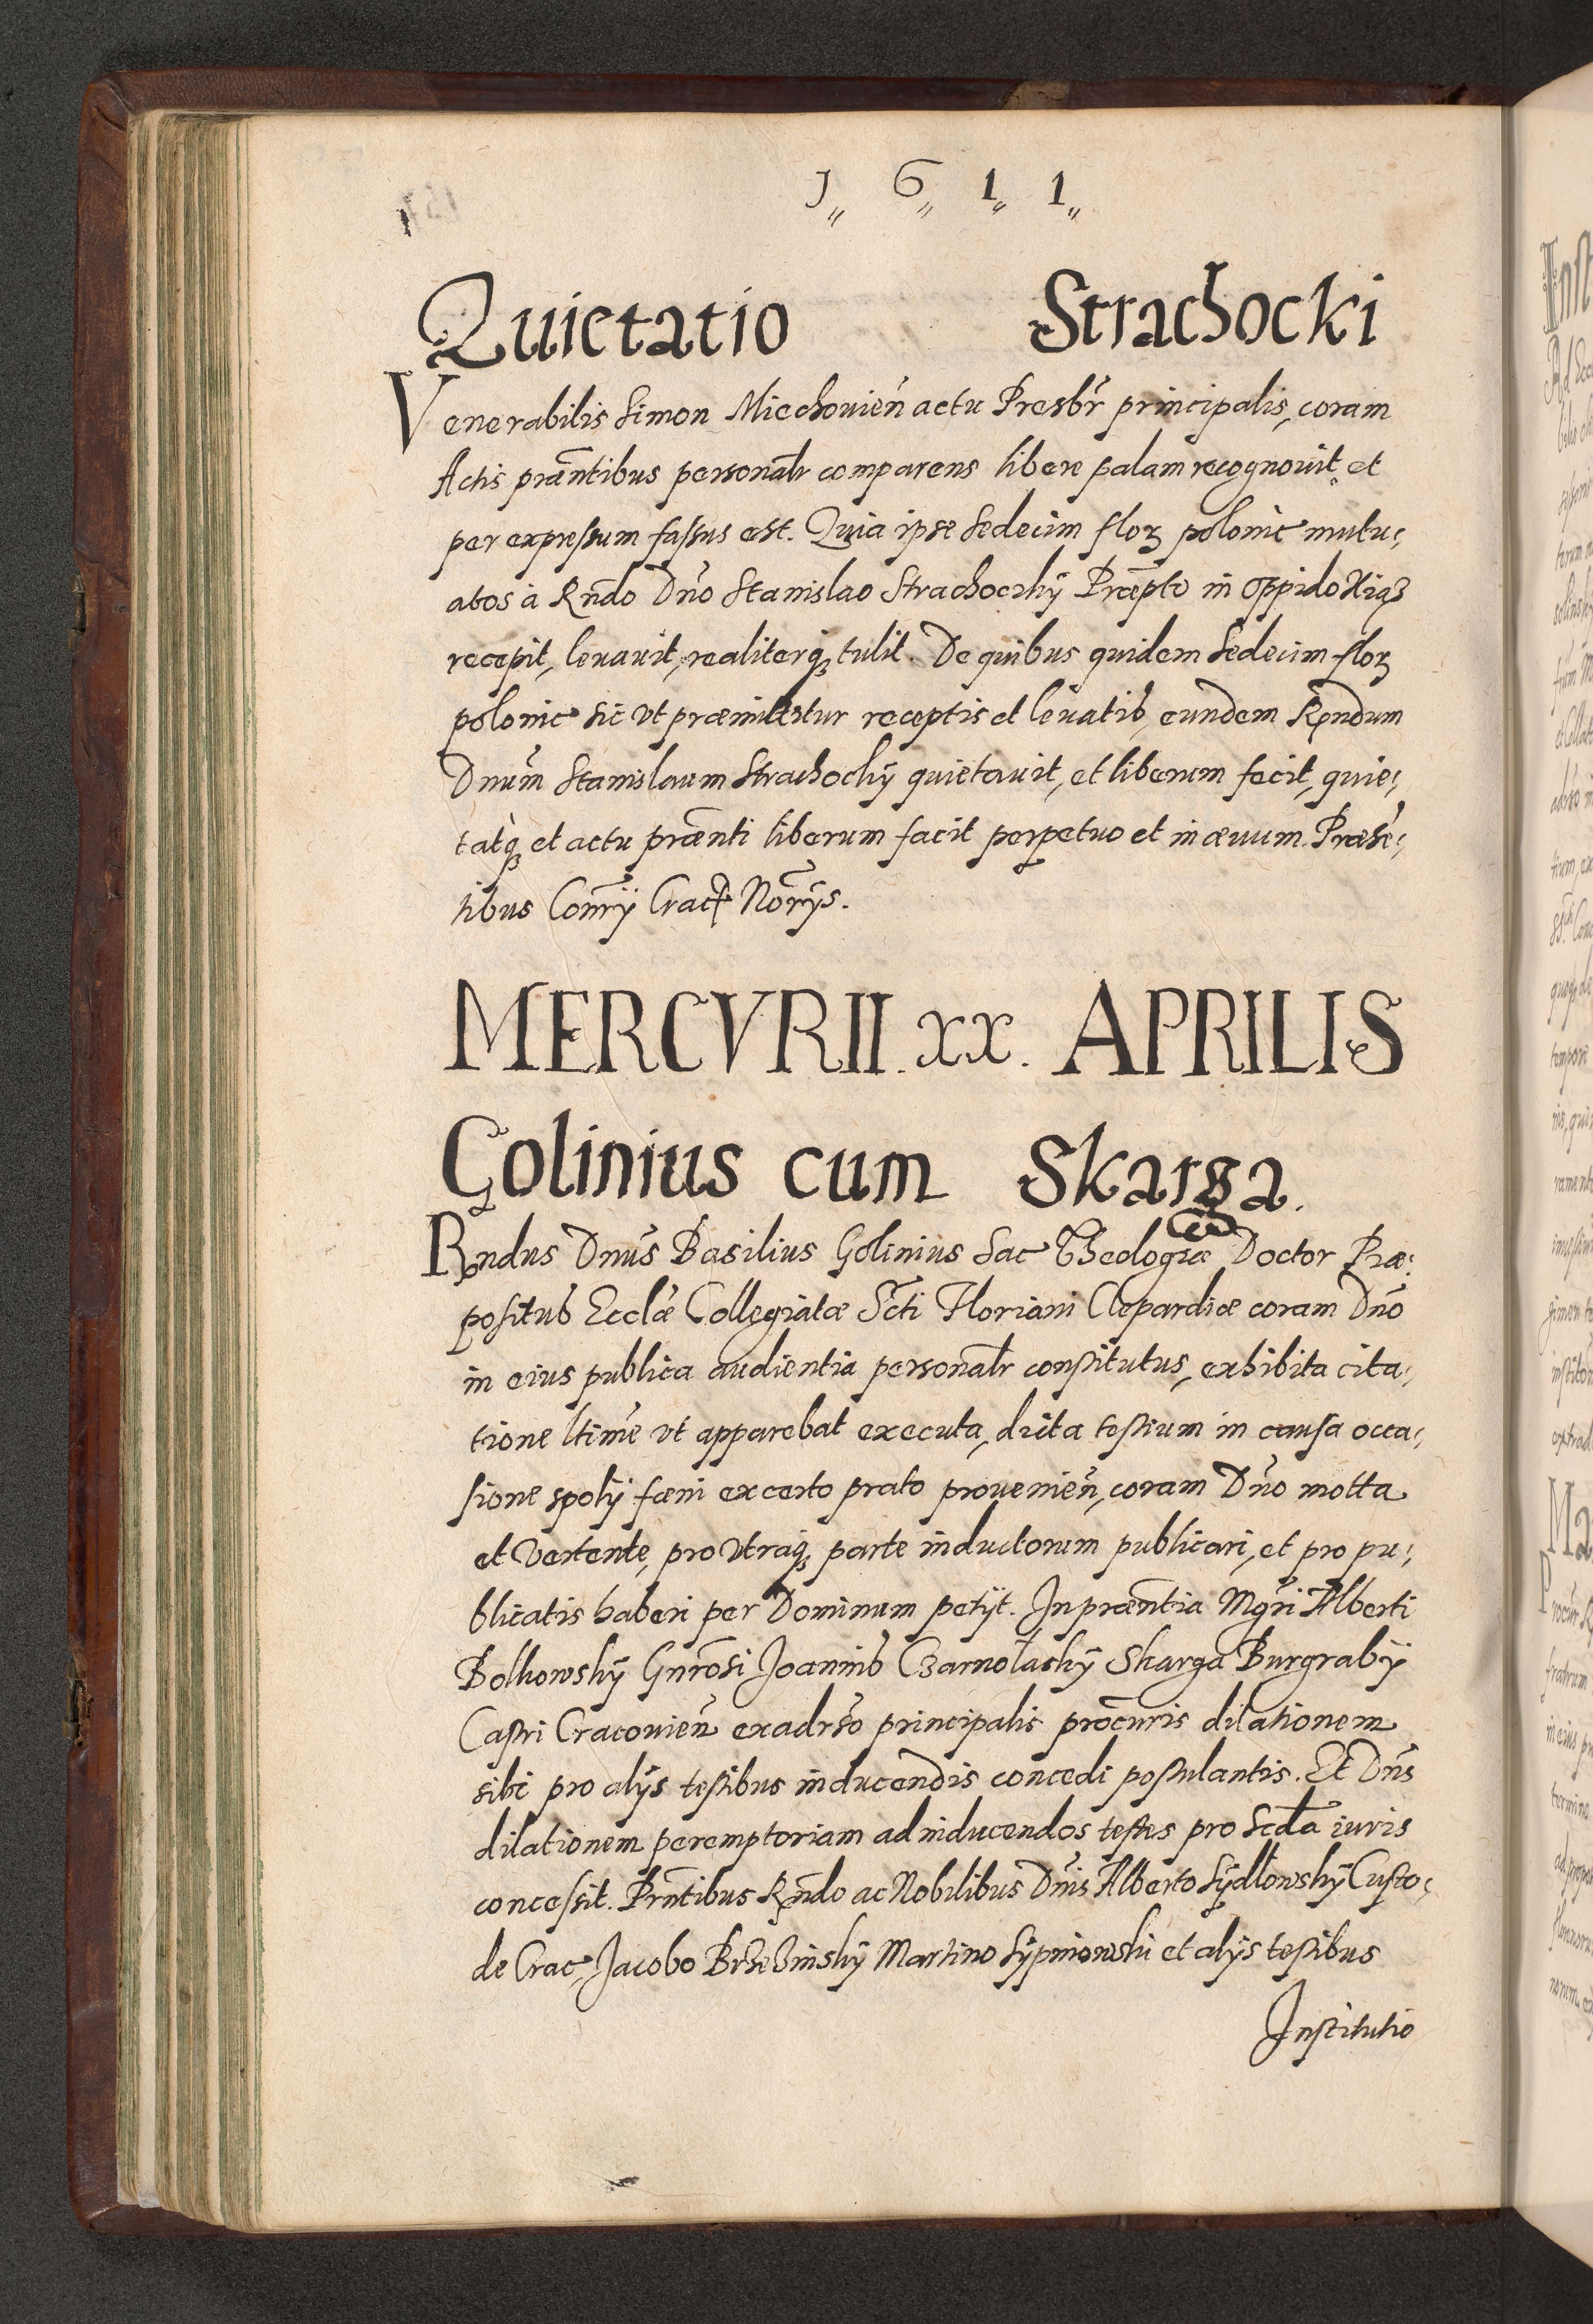 1 6 1 1
Quietatio Strachocki
Venerabilis Simon Miechouien̄ actu Presbr̄ principalis, coram
Actis præn̄tibus personalr̄ comparens libere palam recognouit et
per expressum fassus est. Quia ipse Sedecim flor polonic mutu
atos à Rn̄do Dn̄o Stanislao Strachoczkÿ Præpto in Oppido Xiąż
recepit, leuauit, realiterq tulit. De quibus quidem Sedecim flor
polonic sic vt præmittitur receptis et leuatis, eundem Rndum
Dnum̄ Stanislaum Strachockÿ quietauit, et liberum fecit, quie
tatq et actu præn̄ti liberum facit perpetuo et in æuum. Præsē
tibus Conr̄ÿ Crac Norȳs.
MERCVRII. xx. APRILIS
Golinius cum Skarga.
Rndus Dnūs Basilius Golinius Sac Theologiæ Doctor Præ
positus Eccl̄æ Collegiatæ Sc̄ti Floriani Clepardiæ coram Dn̄o
in eius publica audientia personalr̄ constitutus, exhibita cita
tione ltim̄e vt apparebat executa, dicta testium in causa occa
sione spolÿ fæni ex certo prato prouenien̄, coram Dn̄o motta
et vertente, pro vtraq parte inductorum publicari, et pro pu
blicatis haberi per Dominum petÿt. In præn̄tia Mgr̄i Alberti
Bolkowskÿ Gnr̄osi Joannis Czarnołaskÿ Skarga Burgrabÿ
Castri Cracouien̄ ex adrs̄o principalis procūris dilationem
sibi pro alÿs testibus inducendis concedi postulantis. Et Dn̄s
dilationem peremptoriam ad inducendos testes pro Scd̄a iuris
concessit. Prn̄tibus Rn̄do ac Nobilibus Dn̄is Alberto Sÿdłowskÿ Custo
de Crac, Jacobo Brzezinskÿ Martino Sÿpniowski et alÿs testibus
Institutio